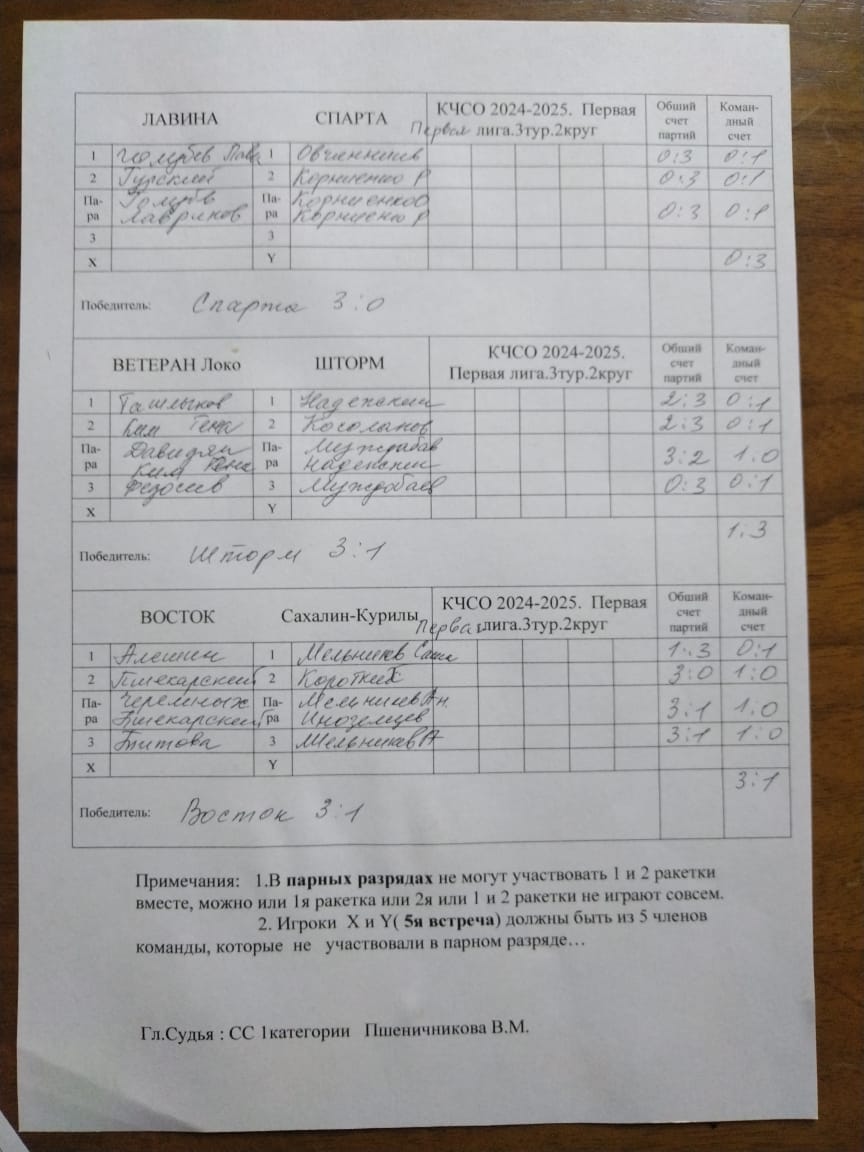 ЛАВИНА СПАРТА КЧСО 2024-2025. Первая Общий Коман-
Первая лига.3тур.2круг счет дный
партий счет
1 Голубев Пава 1 Овчинников 0:3 0:1
2 Гурский 2 Корниенко Р 0:3 0:1
Па- Голубев Па- Корниенко О
ра Лавриков ра Корниенко Р 0:3 0:1
3 3
X Y 0:3
Победитель: Спарта 3:0
ВЕТЕРАН Локо ШТОРМ КЧСО 2024-2025. Общий Коман-
Первая лига.3тур.2круг счет дный
партий счет
1 Ташлыков 1 Надежкин 2:3 0:1
2 Ким Гена 2 Косолапов 2:3 0:1
Па- Давидян Па- Муждабаев
ра Ким Гена ра Надежкин 3:2 1:0
3 Федосеев 3 Муждабаев 0:3 0:1
X Y
1:3
Победитель: Шторм 3:1
ВОСТОК Сахалин-Курилы КЧСО 2024-2025. Первая Общий Коман-
Первая лига.3тур.2круг счет дный
партий счет
1 Алешин 1 Мельников Саша 1:3 0:1
2 Пшекарский 2 Коротких 3:0 1:0
Па- Черемных Па- Мельников Ан.
ра Пшекарский ра Иноземцев 3:1 1:0
3 Титова 3 Мельников А 3:1 1:0
X Y
3:1
Победитель: Восток 3:1
Примечания: 1.В парных разрядах не могут участвовать 1 и 2 ракетки
вместе, можно или 1я ракетка или 2я или 1 и 2 ракетки не играют совсем.
2. Игроки X и Y( 5я встреча) должны быть из 5 членов
команды, которые не участвовали в парном разряде…
Гл.Судья : СС 1категории Пшеничникова В.М.